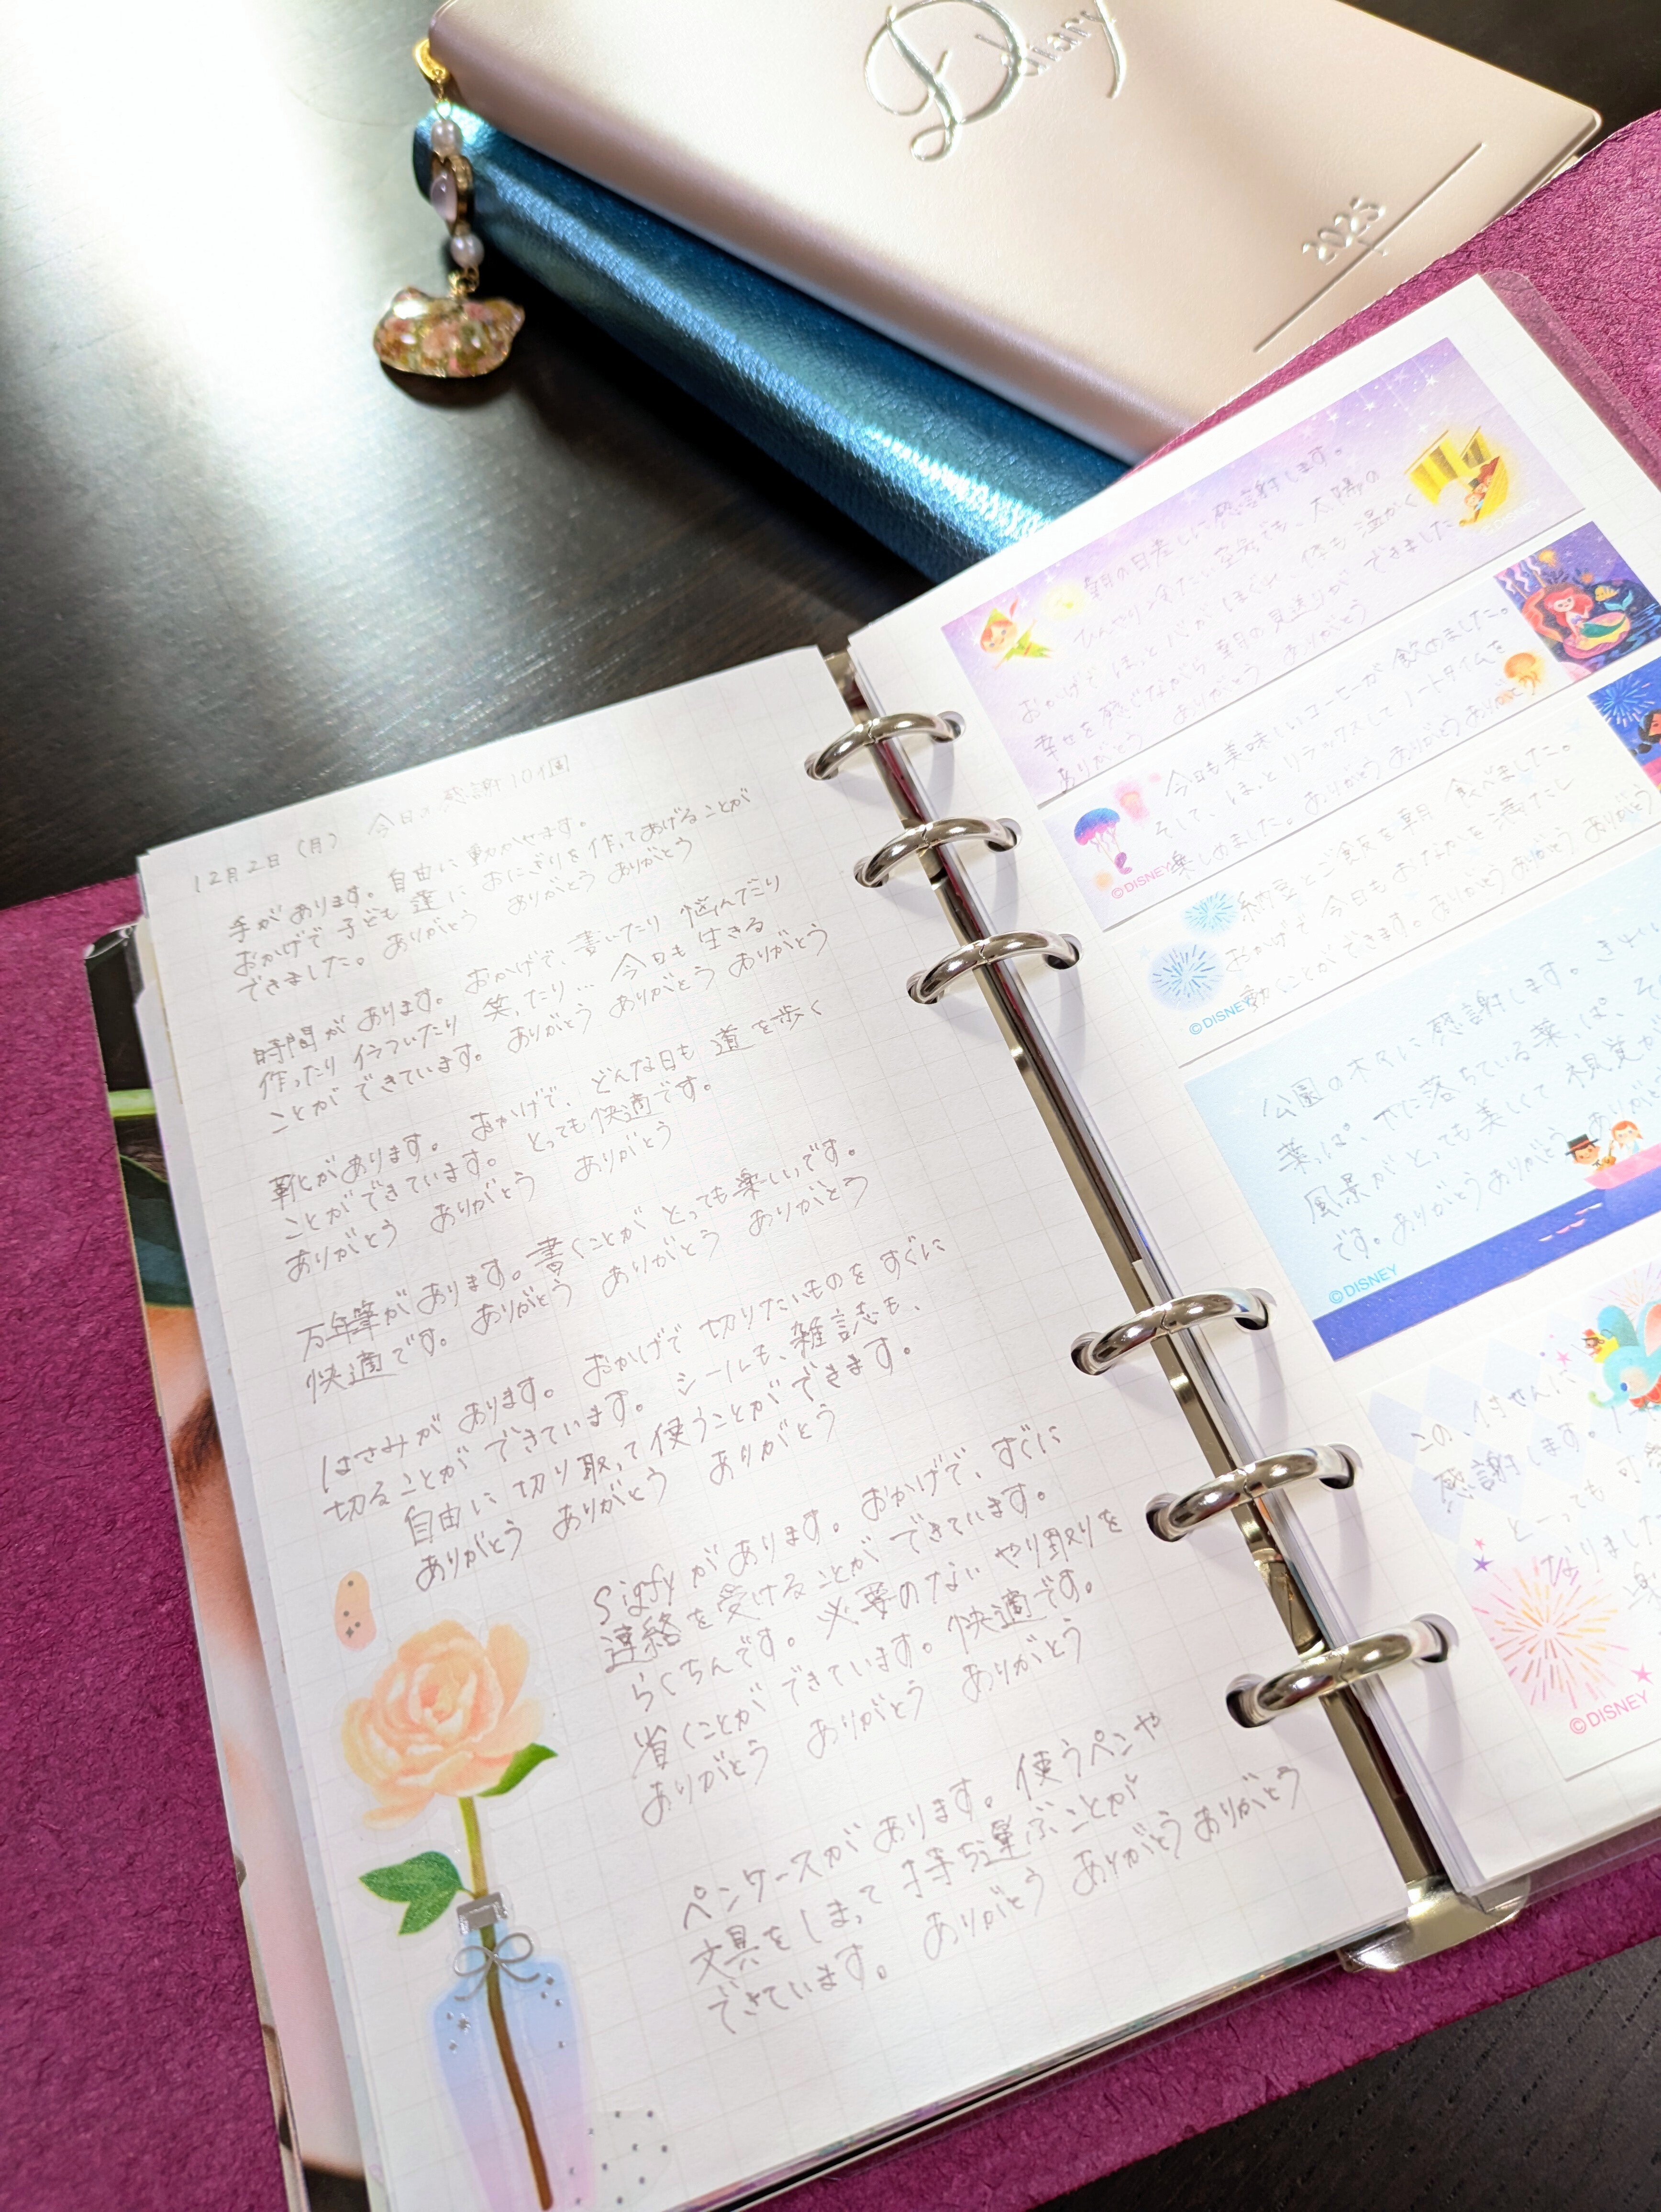 Diary
2025
12月2日（月） 今日の感謝10個
手があります。自由に動かせます。
おかげで子ども達におにぎりを作ってあげることが
できました。ありがとう ありがとう ありがとう
時間があります。おかげで、書いたり 悩んでたり
作ったり イラついたり 笑ったり… 今日も生きる
ことができています。ありがとう ありがとう ありがとう
靴があります。おかげで、どんな日も 道を歩く
ことができています。とっても快適です。
ありがとう ありがとう ありがとう
万年筆があります。書くことが とっても楽しいです。
快適です。ありがとう ありがとう ありがとう
はさみが あります。おかげで 切りたいものを すぐに
切ることが できています。シールも、雑誌も、
自由に 切り取って 使うことができます。
ありがとう ありがとう ありがとう
があります。おかげで、すぐに
連絡を受けることが できています。
らくちんです。必要のない やり取りを
省くことが できています。快適です。
ありがとう ありがとう ありがとう
ペンケースが あります。使うペンや
文具を しまって 持ち運ぶことが
できています。ありがとう ありがとう ありがとう
朝の日差しに感謝します。
ひんやり冷たい空気でも、太陽の
おかげで ほっと 心が ほぐれ、体も 温かく
幸せを感じながら 朝の見送りが できました
ありがとう ありがとう ありがとう
今日も美味しいコーヒーが 飲めました。
そして、ほっと リラックスして ノートタイムを
楽しめました。ありがとう ありがとう ありがとう
©DISNEY
納豆とご飯を朝 食べました。
おかげで 今日も おなかを 満たし
動くことができます。ありがとう ありがとう ありがとう
©DISNEY
公園の木々に 感謝します。
葉っぱ、下に落ちている葉っぱ、
風景が とっても 美しくて 視覚
です。ありがとう ありがとう
©DISNEY
この、付せんに
感謝します。
とーっても 可
なりました
楽
©DISNEY